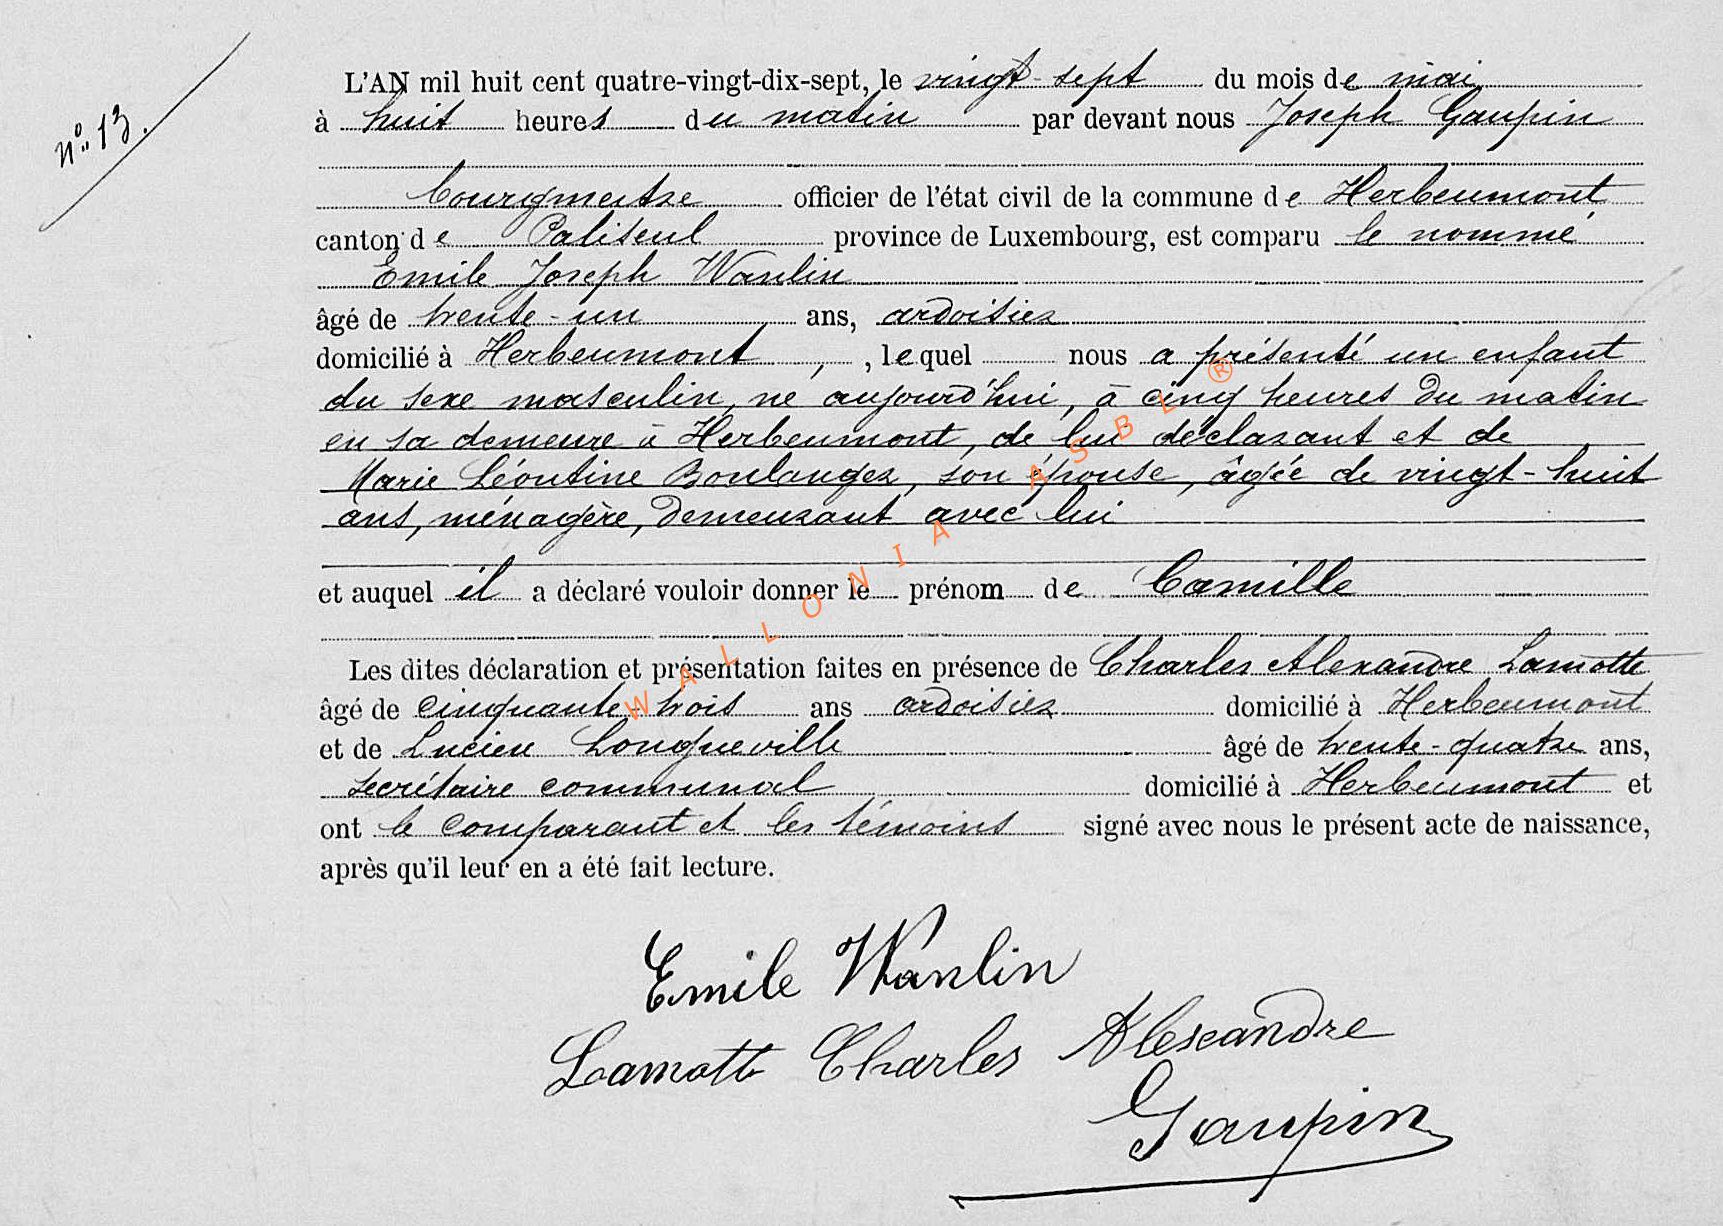 n° 13.
L'AN mil huit cent quatre-vingt-dix-sept, le vingt-sept du mois de mai
à huit heures du matin par devant nous Joseph Gaupin
bourgmestre officier de l'état civil de la commune de Herbeumont
canton de Paliseul province de Luxembourg, est comparu le nommé
Emile Joseph Wanlin
âgé de trente-un ans, ardoisier
domicilié à Herbeumont, , lequel nous a présenté un enfant
du sexe masculin, né aujourd'hui, à cinq heures du matin
en sa demeure à Herbeumont, de lui déclarant et de
Marie Léontine Boulanger, son épouse, âgée de vingt-huit
ans, ménagère, demeurant avec lui
et auquel il a déclaré vouloir donner le prénom de Camille
Les dites déclaration et présentation faites en présence de Charles Alexandre Lamotte
âgé de cinquante-trois ans ardoisier domicilié à Herbeumont
et de Lucien Longueville âgé de trente-quatre ans,
secrétaire communal domicilié à Herbeumont et
ont le comparant et les témoins signé avec nous le présent acte de naissance,
après qu'il leur en a été fait lecture.
Emile Wanlin
Lamotte Charles Alexandre
Gaupin
WALLONIA ASBL ®